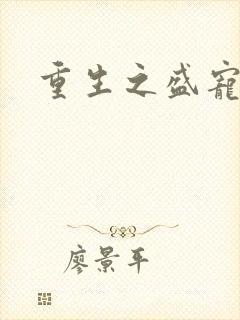 重生之盛寵
廖景平